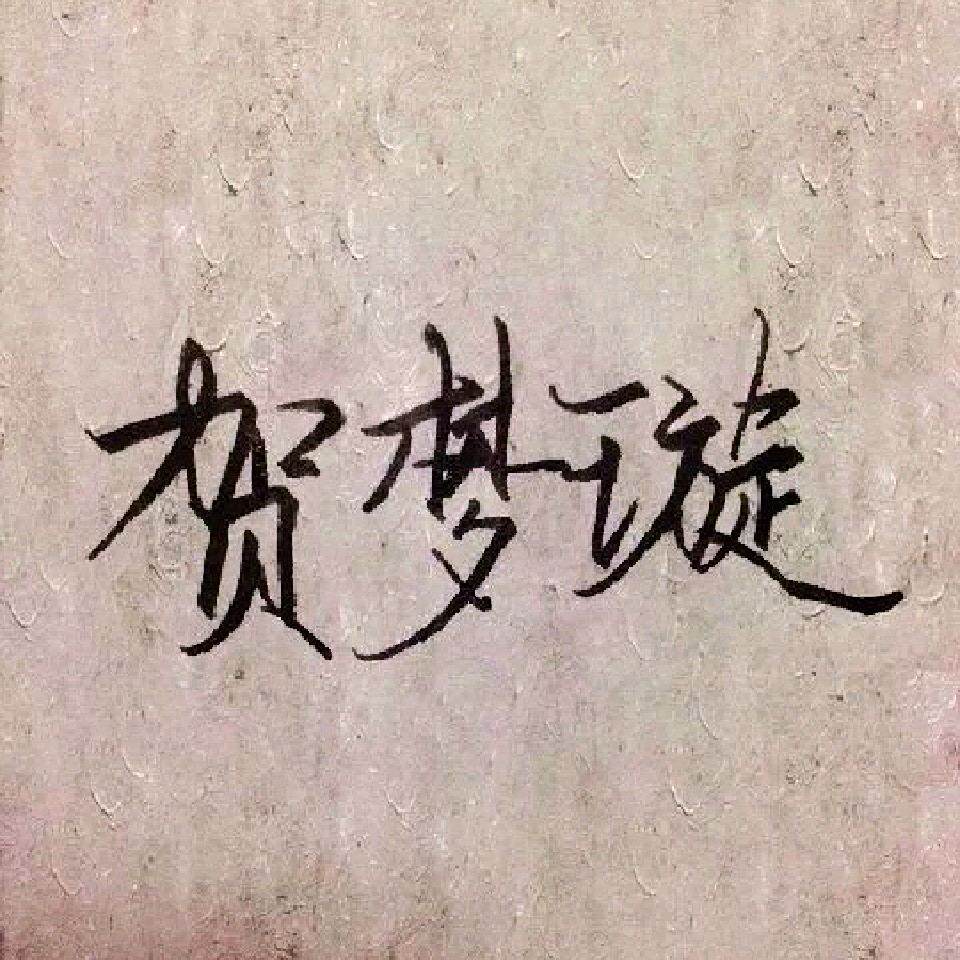 贺梦璇